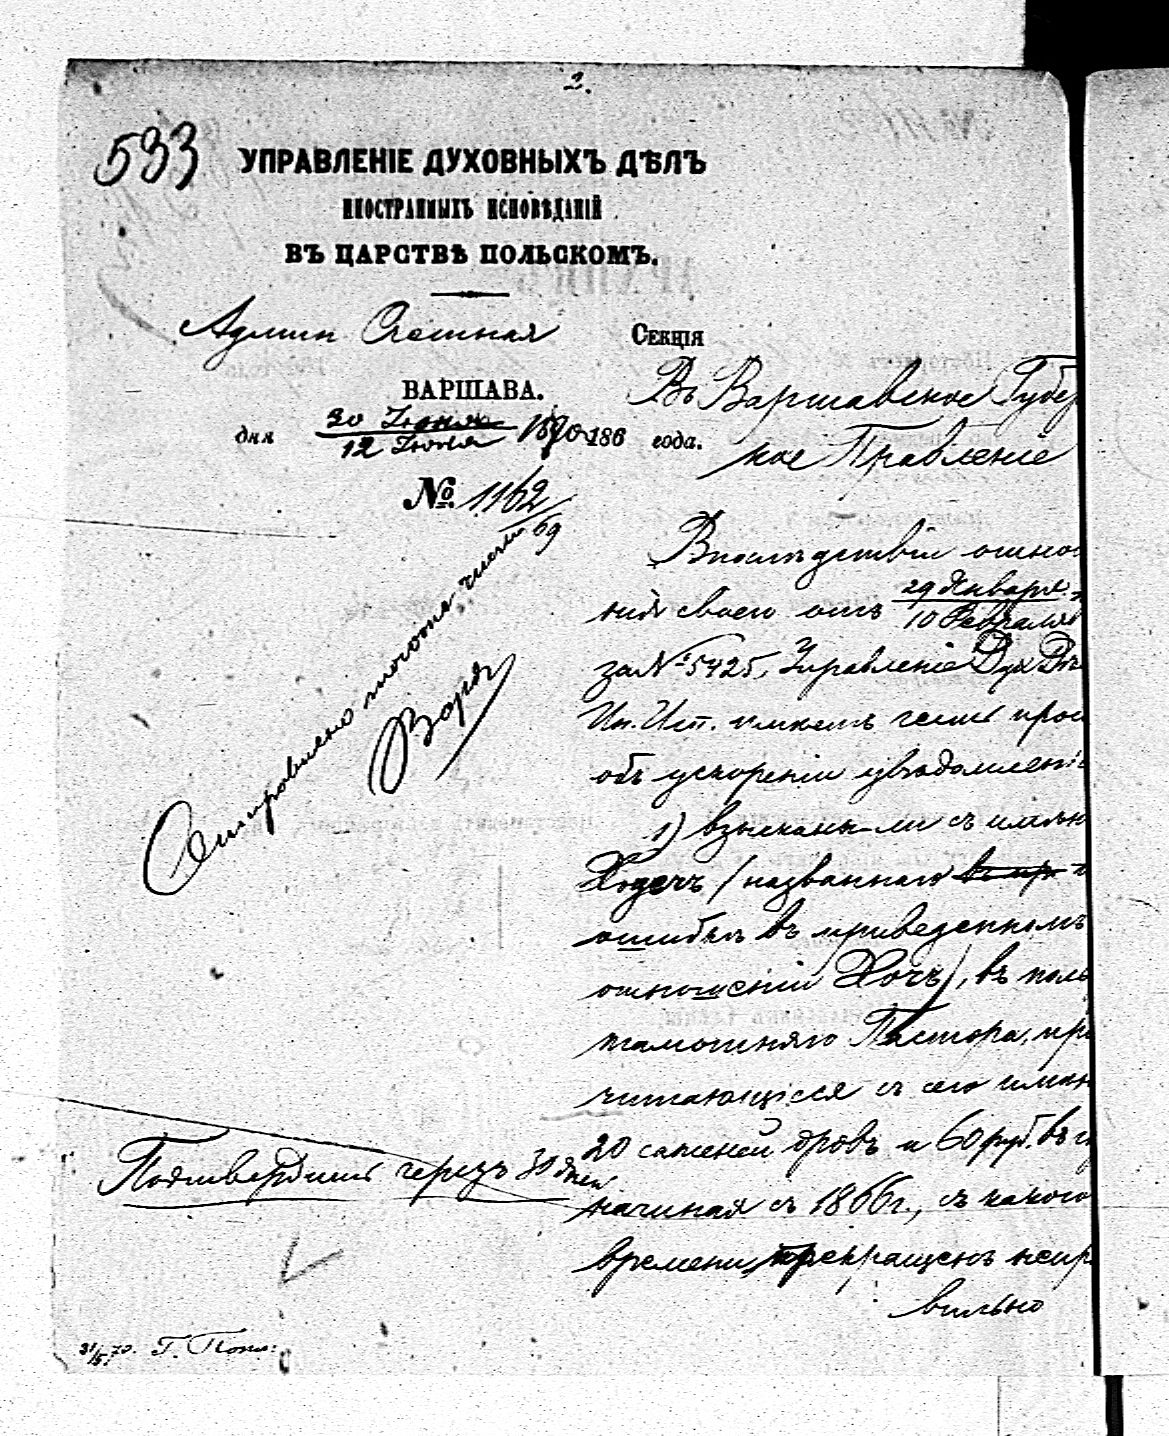 2.
533
УПРАВЛЕНІЕ ДУХОВНЫХЪ ДѢЛЪ
ИНОСТРАННЫХЪ ИСПОВѢДАНІЙ
ВЪ ЦАРСТВѢ ПОЛЬСКОМЪ.
Админ Счетная СЕКЦІЯ
ВАРШАВА.
дня 30 / 12 Іюня 1870 186 года.
№ 1162/69
Въ Варшавское Губер
ное Правленіе
Впослѣдствіи отно
нія своего отъ 29 Января / 10 Февраля
за № 5425, Управленіе Дух Дѣ
Ин. Исп. имѣетъ честь прос
объ ускореніи увѣдомленія
1) взысканы-ли съ имѣн
Ходечъ (названнаго въ пр
ошибкѣ въ приведенномъ
отношеніи Хочъ), въ поль
тамошняго Пастора, при
читающіеся съ сего имѣн
20 саженей дровъ и 60 руб. въ г
начиная съ 1866 г., съ какого
времени, прекращенъ непра
вильно
Отправлено
Подтвердить черезъ 30 дней
31/5 70. Г.